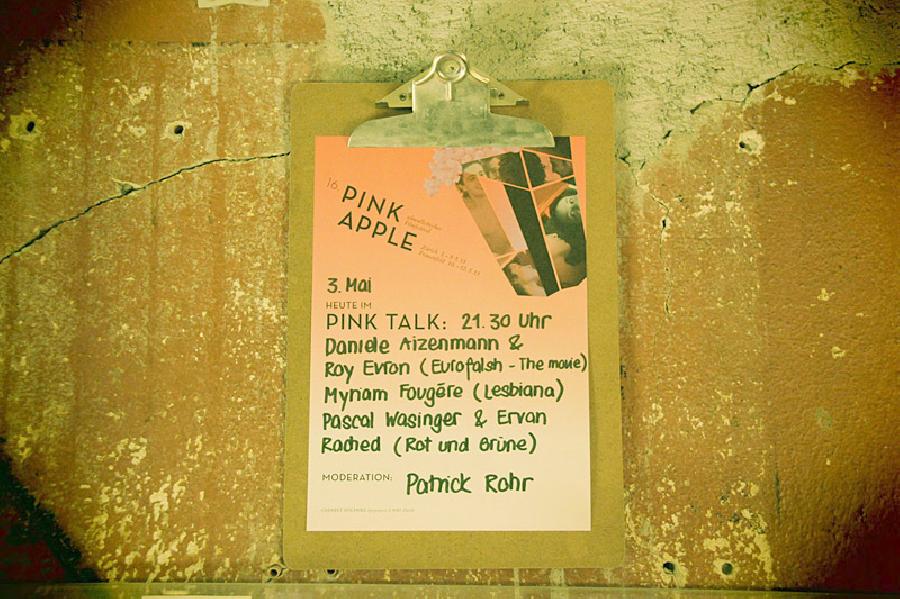 16.
PINK
APPLE
3. Mai
HEUTE IM
PINK TALK: 21.30 Uhr
Daniele Aizenmann &
Roy Evron (Eurofalsh - The movie)
Myriam Fougère (Lesbiana)
Pascal Wasinger & Ervan
Rached (Rot und Grüne)
MODERATION: Patrick Rohr